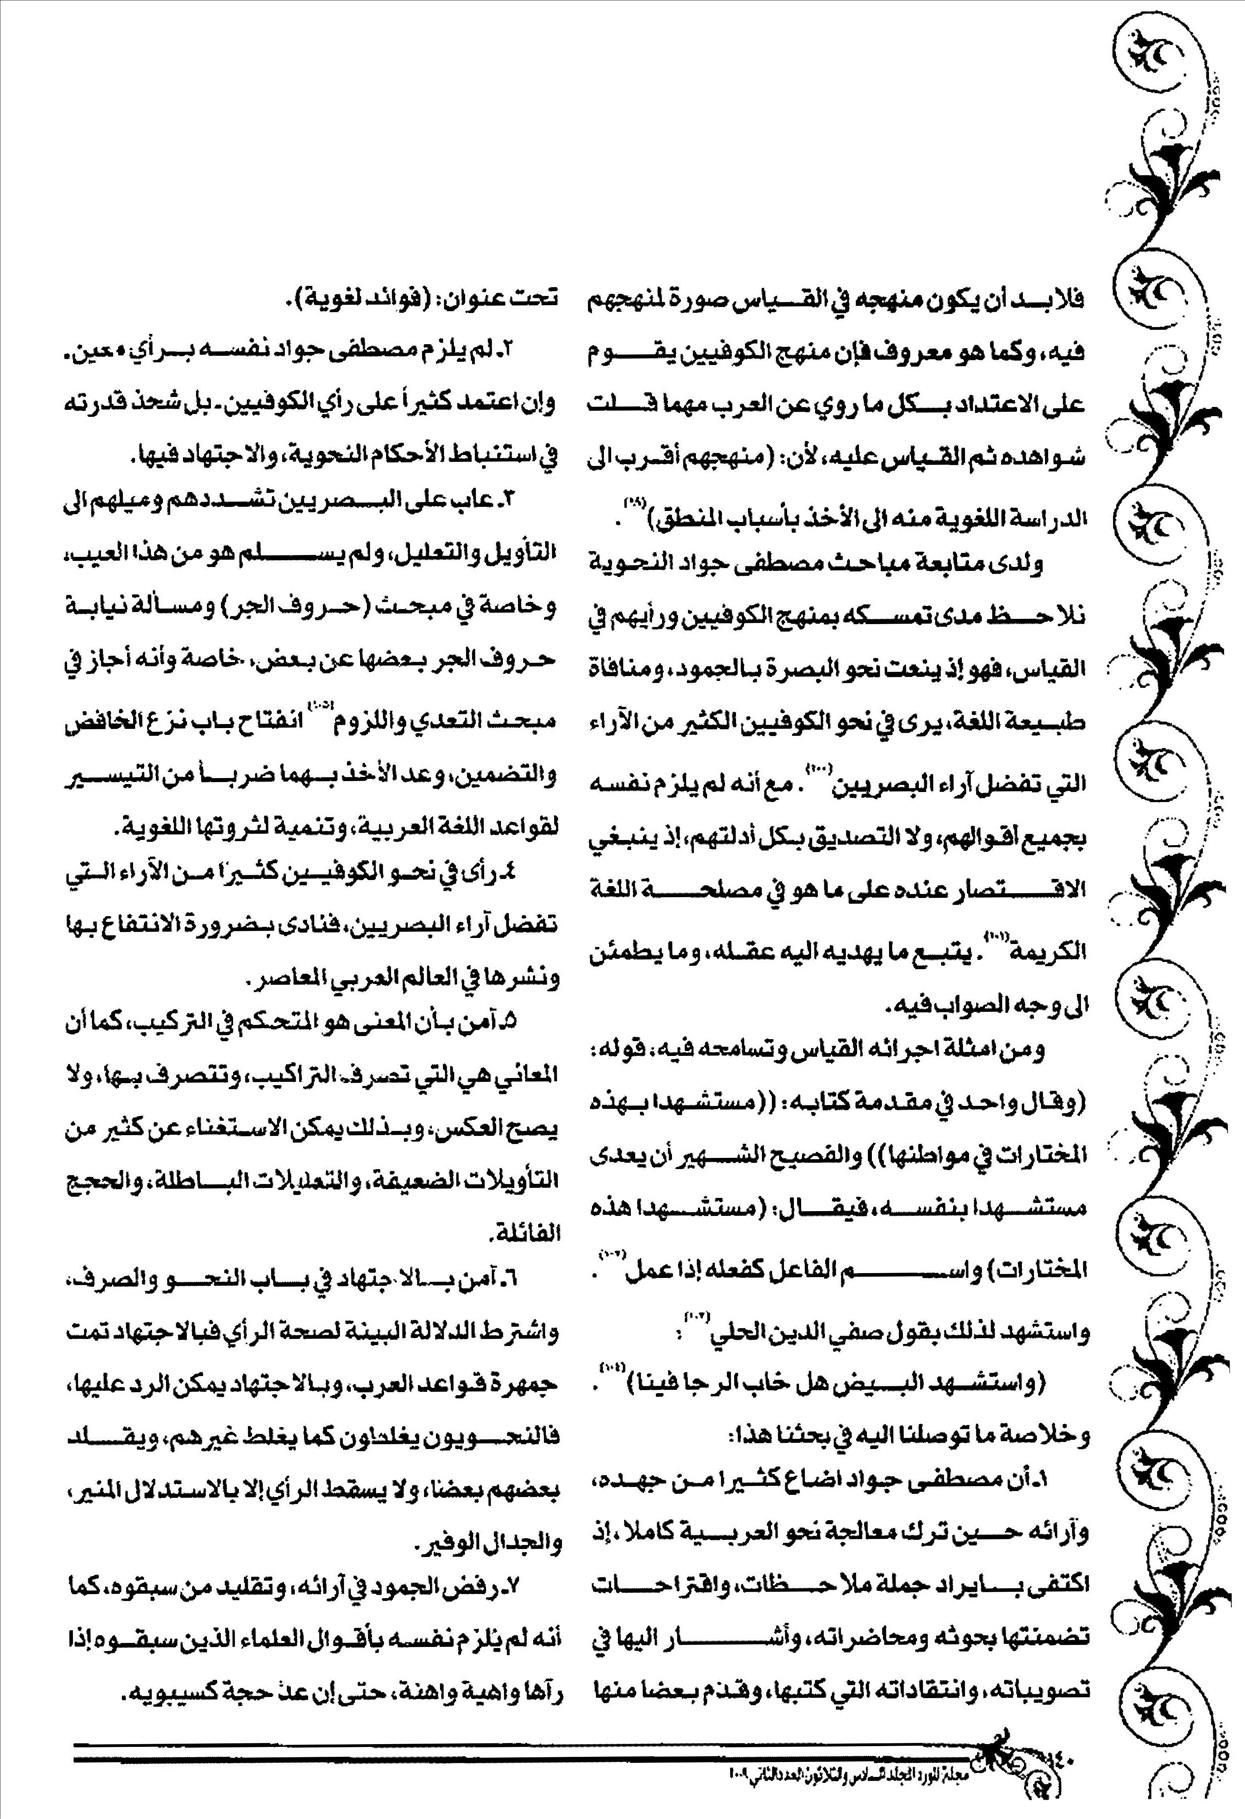 فلابد أن يكون منهجه في القياس صورة لمنهجهم
فيه، وكما هو معروف فإن منهج الكوفيين يقوم
على الاعتداد بكل ما روي عن العرب مهما قلت
شواهده ثم القياس عليه، لأن: (منهجهم أقرب الى
الدراسة اللغوية منه الى الأخذ بأسباب المنطق).
ولدى متابعة مباحث مصطفى جواد النحوية
نلاحظ مدى تمسكه بمنهج الكوفيين ورأيهم في
القياس، فهو إذ ينعت نحو البصرة بالجمود، ومنافاة
طبيعة اللغة، يرى في نحو الكوفيين الكثير من الآراء
التي تفضل آراء البصريين(١٠٠). مع أنه لم يلزم نفسه
بجميع اقوالهم، ولا التصديق بكل أدلتهم، إذ ينبغي
الاقتصار عنده على ما هو في مصلحة اللغة
الكريمة(١٠١). يتبع ما يهديه اليه عقله، وما يطمئن
الى وجه الصواب فيه.
ومن امثلة اجرائه القياس وتسامحه فيه، قوله:
(وقال واحد في مقدمة كتابه: ((مستشهدا بهذه
المختارات في مواطنها)) والفصيح الشهير أن يعدى
مستشهدا بنفسه، فيقال: (مستشهدا هذه
المختارات) واسم الفاعل كفعله إذا عمل(١٠٢).
واستشهد لذلك بقول صفي الدين الحلي(١٠٣):
(واستشهد البيض هل خاب الرجا فينا)(١٠٤).
وخلاصة ما توصلنا اليه في بحثنا هذا:
١. أن مصطفى جواد اضاع كثيرا من جهده،
وآرائه حين ترك معالجة نحو العربية كاملا، إذ
اكتفى بايراد جملة ملاحظات، واقتراحات
تضمنتها بحوثه ومحاضراته، وأشار اليها في
تصويباته، وانتقاداته التي كتبها، وقدم بعضا منها
تحت عنوان: (فوائد لغوية).
٢. لم يلزم مصطفى جواد نفسه برأي معين.
وإن اعتمد كثيراً على رأي الكوفيين. بل شحذ قدرته
في استنباط الأحكام النحوية، والاجتهاد فيها.
٣. عاب على البصريين تشددهم وميلهم الى
التأويل والتعليل، ولم يسلم هو من هذا العيب،
وخاصة في مبحث (حروف الجر) ومسألة نيابة
حروف الجر بعضها عن بعض، خاصة وأنه أجاز في
مبحث التعدي واللزوم(١٠٥) انفتاح باب نزع الخافض
والتضمين، وعد الأخذ بهما ضرباً من التيسير
لقواعد اللغة العربية، وتنمية لثروتها اللغوية.
٤. رأى في نحو الكوفيين كثيرًا من الآراء التي
تفضل آراء البصريين، فنادى بضرورة الانتفاع بها
ونشرها في العالم العربي المعاصر.
٥. آمن بأن المعنى هو المتحكم في التركيب، كما أن
المعاني هي التي تصرف التراكيب، وتتصرف بها، ولا
يصح العكس، وبذلك يمكن الاستغناء عن كثير من
التأويلات الضعيفة، والتعليلات الباطلة، والحجج
الفائلة.
٦. آمن بالاجتهاد في باب النحو والصرف،
واشترط الدلالة البينة لصحة الرأي فبالاجتهاد تمت
جمهرة قواعد العرب، وبالاجتهاد يمكن الرد عليها،
فالنحويون يغلطون كما يغلط غيرهم، ويقلد
بعضهم بعضا، ولا يسقط الرأي إلا بالاستدلال المنير،
والجدال الوفير.
٧. رفض الجمود في آرائه، وتقليد من سبقوه، كما
أنه لم يُلزم نفسه بأقوال العلماء الذين سبقوه إذا
رآها واهية واهنة، حتى إن عدّ حجة كسيبويه.
١٤٠
مجلة المورد المجلد السادس والثلاثون العدد الثاني ٢٠٠٩